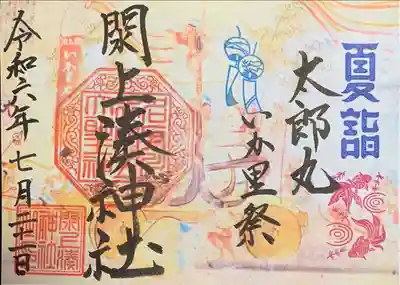 夏詣
太郎丸
いか里祭
閖上湊神社
令和六年七月二十一日
閖上湊
神社